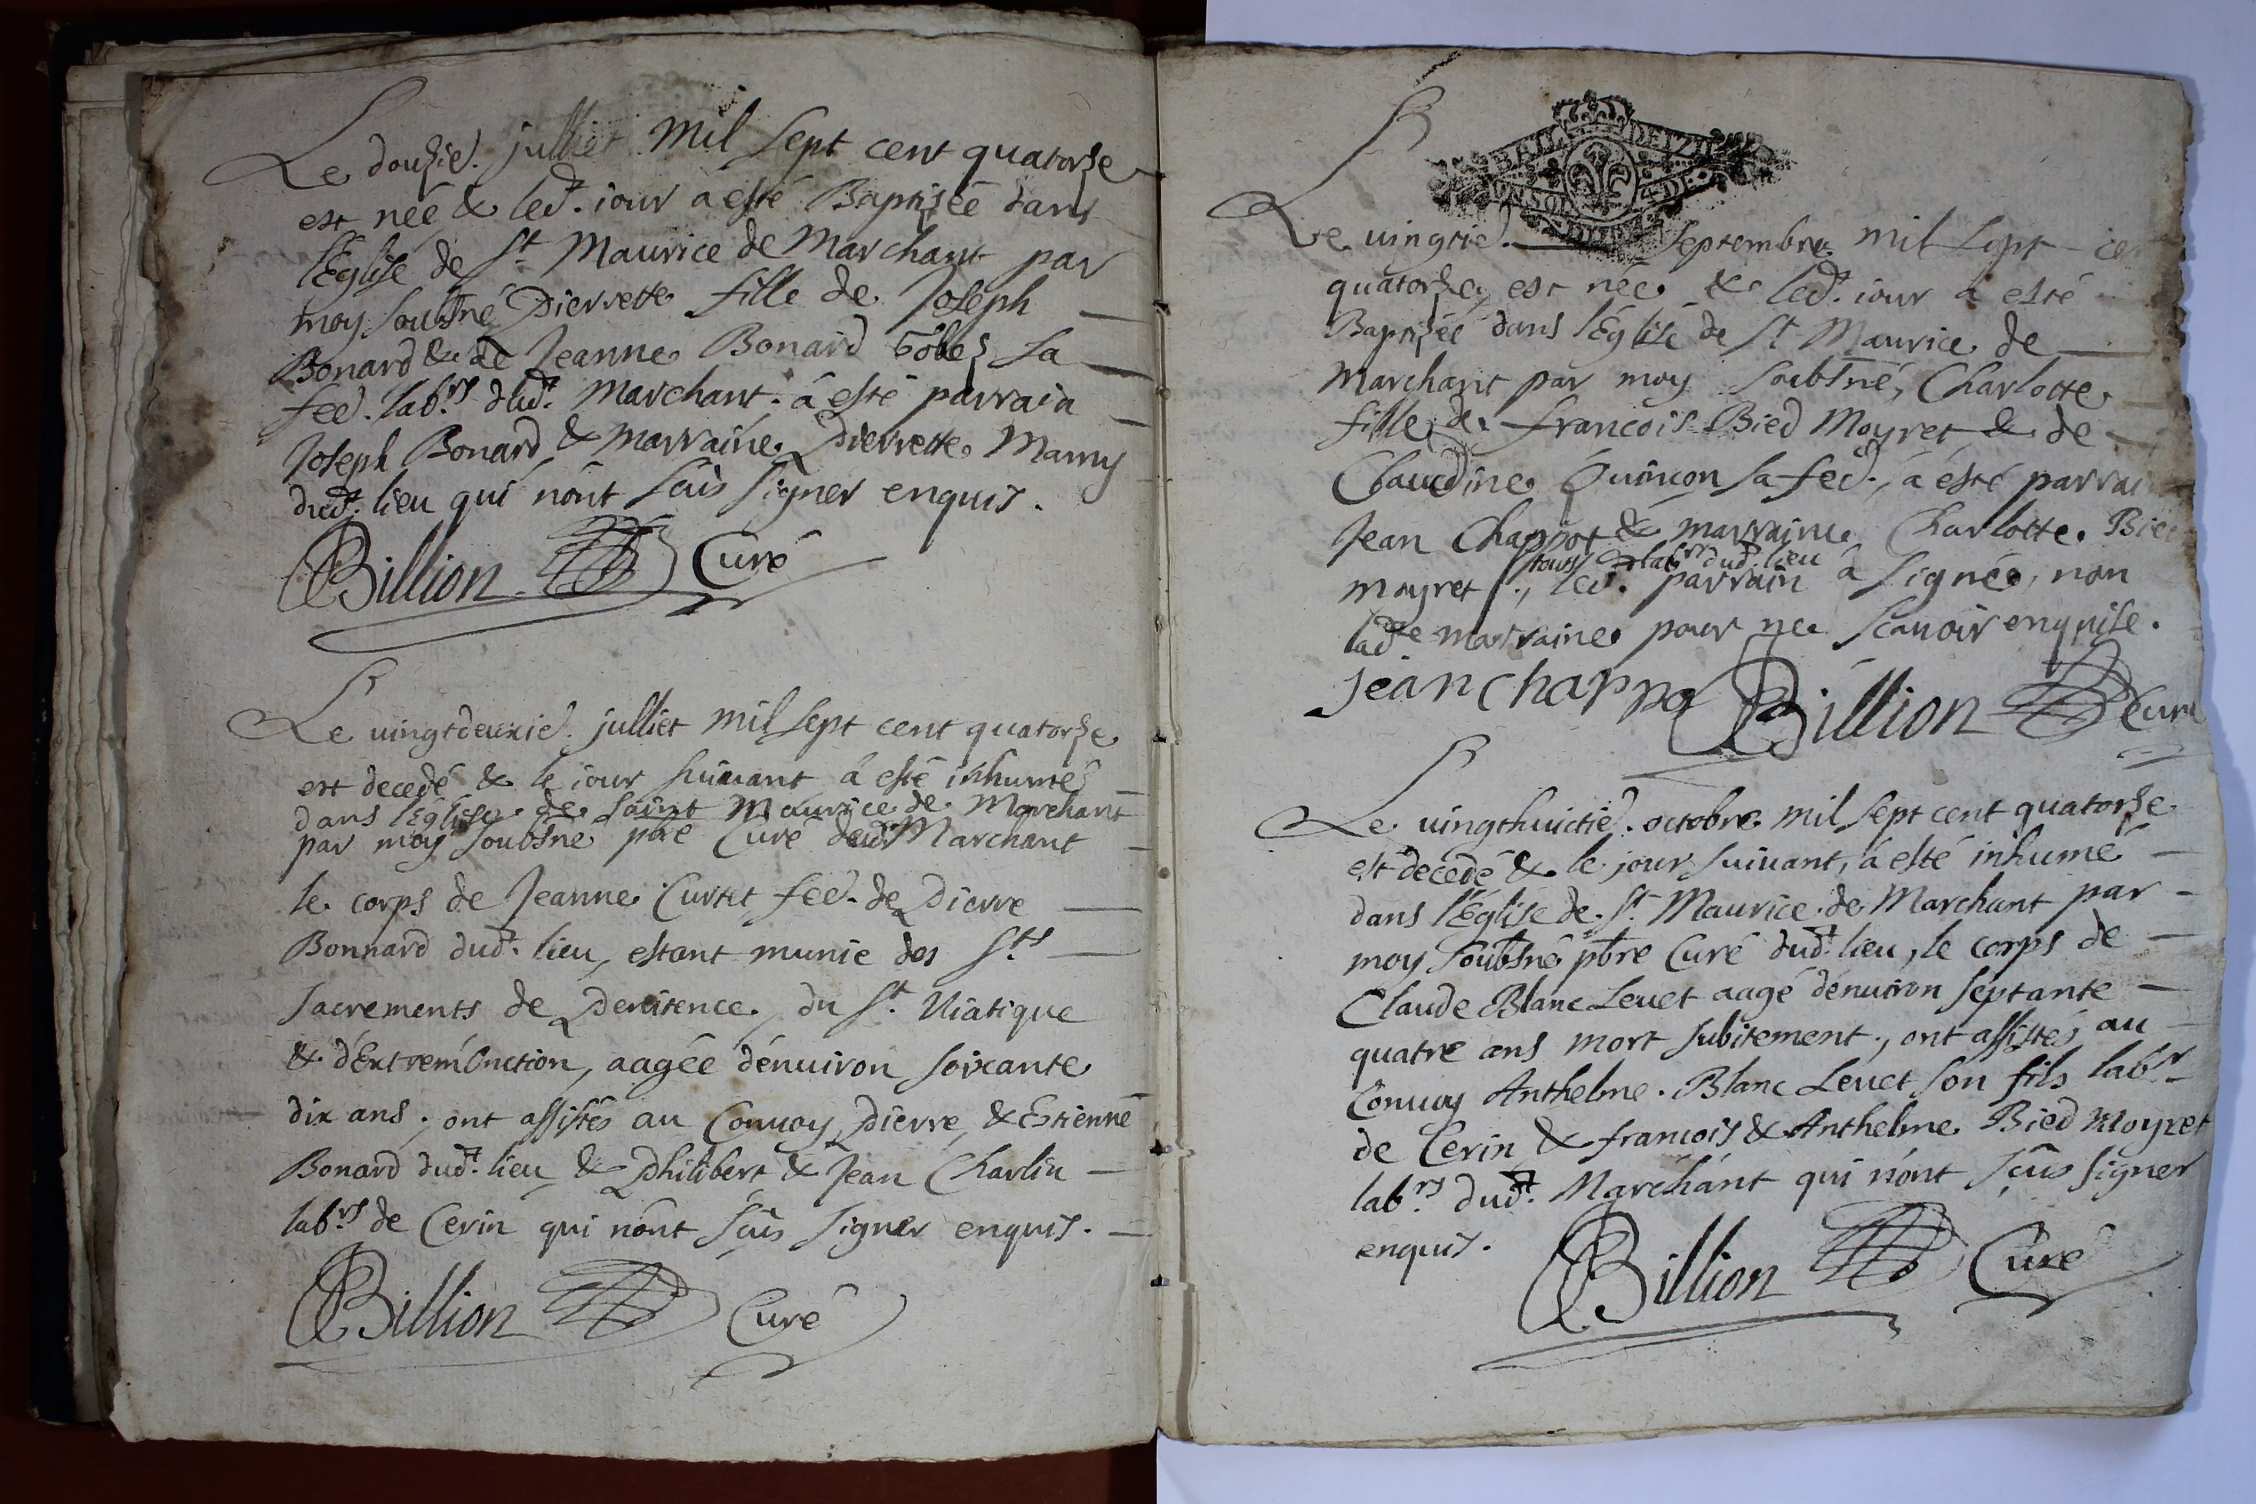 Le douzie. julliet mil sept cent quatorze
est née & led. iour a esté Baptisée dans
l'Eglise de St Maurice de Marchant par
moy soubsné Pierrette fille de Joseph
Bonard & de Jeanne Bonard Gobet sa
fee. labrs dudt. Marchant. a esté parrain
Joseph Bonard & marraine Pierrette Marny
dudt. lieu qui n'ont sçus signer enquis.
Billion Curé
Le vingtdeuxie. julliet mil sept cent quatorze
est decedé & le iour suiuant a esté inhumée
dans l'Eglise de saint Maurice de Marchant
par moy soubsné pbre Curé dudt Marchant
le corps de Jeanne Curtet fee. de Pierre
Bonnard dudt. lieu, estant munie des Sts
sacrements de Penitence, du St. Uiatique
& d'Extremonction, aagée d'enuiron soixante
dix ans, ont assistés au Conuoy Pierre, & Estienne
Bonard dudt. lieu & Philibert & Jean Charlin
labrs de Cerin qui n'ont sçus signer enquis.
Billion Curé
BAIL
Le uingtie. septembre mil sept
quatorze, est née & led. iour a esté
Baptisée dans l'Eglise de St Maurice de
Marchant par moy soubsné, Charlotte
fille de francois Bied Moyret & de
Claudine Quinçon sa fee., a esté parrai
Jean Chappot & marraine Charlotte Bied
tous labrs dud. lieu
moyret, led. parrain a signée, non
ladte marraine pour ne scauoir enquise.
jean chappo Billion Curé
Le uingthuictie. octobre mil sept cent quatorze
est decedé & le jour suiuant, a esté inhumé
dans l'Eglise de St Maurice de Marchant par
moy soubsné pbre Curé dudt. lieu, le corps de
Claude Blanc Leuet aagé d'enuiron septante
quatre ans mort subitement, ont assistés au
Conuoy Anthelme Blanc Leuet son fils labr
de Cerin & francois & Anthelme Bied Moyret
labrs dudt. Marchant qui n'ont sçus signer
enquis.
Billion Curé